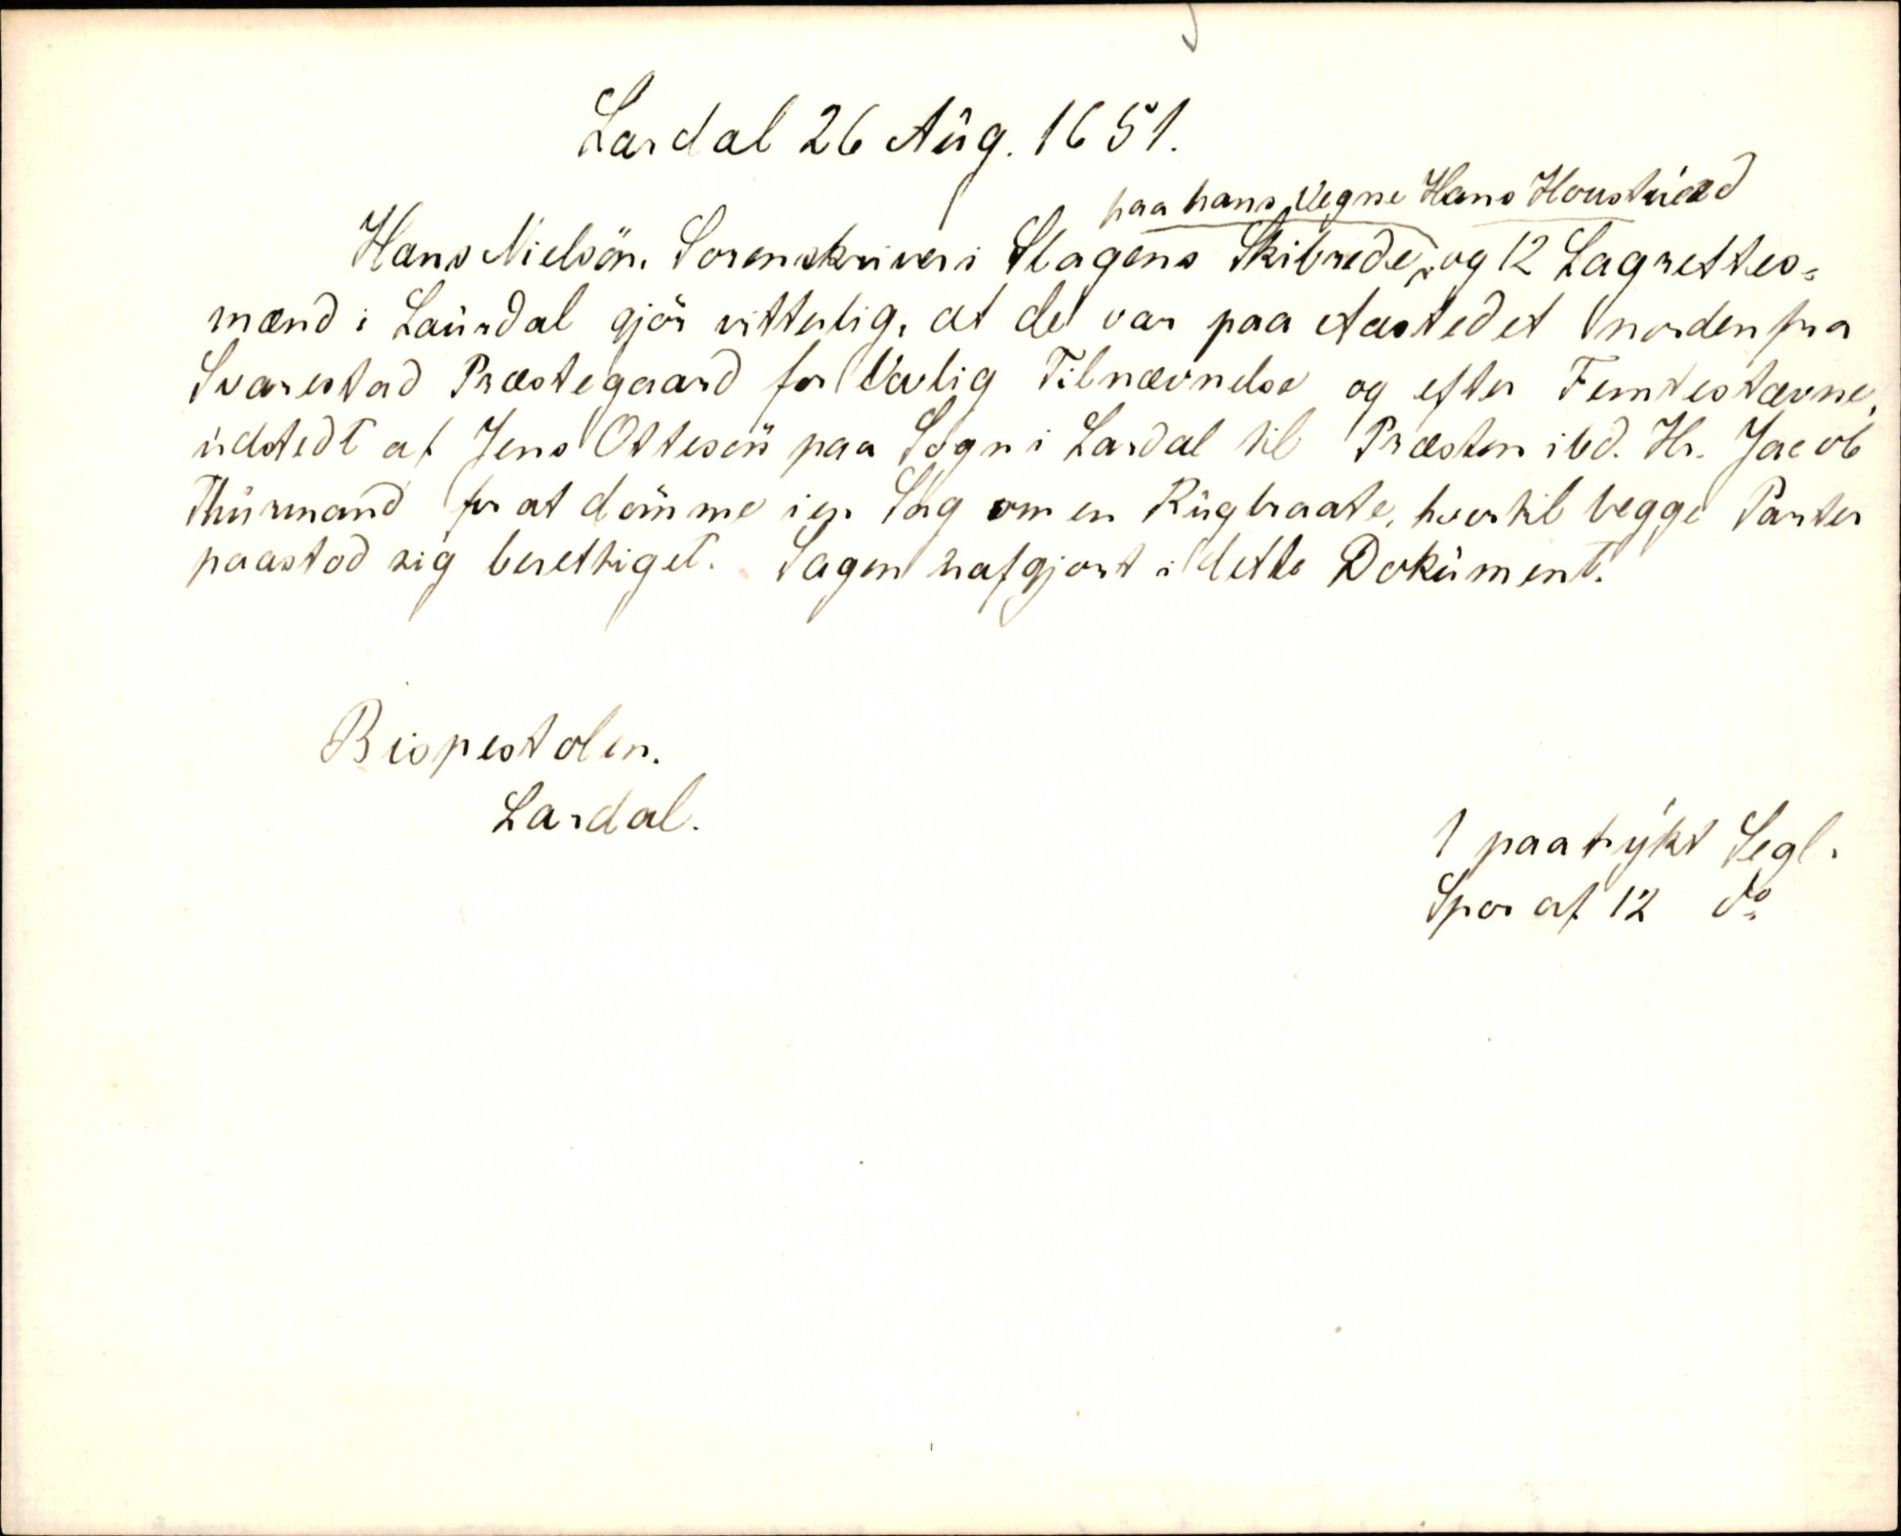 Lardal 26 Aug. 1651.
paa hans Vegne Hans
Hans Nielsön, Sorenskriver i Slagens Skibrede, og 12 Lagrettes-
mænd i Laurdal gjör vitterlig, at de var paa Aastedet norden fra
Svarestad Præstegaard for lovlig Tilnævnelse og efter Femtestævne,
udstedt af Jens Ottesön paa Sogn i Lardal til Præsten ibd. Hr. Jacob
Thurmand for at dömme i en Sag om en Rugbraate, hvortil begge Parter
paastod sig berettiget. Sagen uafgjort i dette Dokument.
Bispestolen.
Lardal.
1 paatrykt Segl.
Spor af 12 do